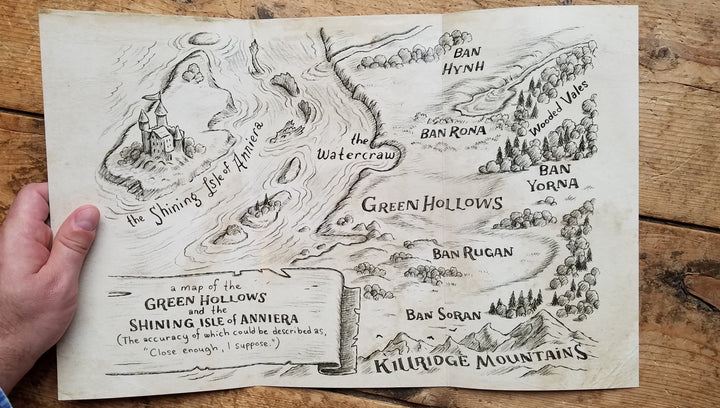 BAN
HYNH
BAN RONA
Wooded Vales
the
Watercraw
BAN
YORNA
the Shining Isle of Anniera
GREEN HOLLOWS
BAN RUGAN
BAN SORAN
KILLRIDGE MOUNTAINS
a map of the
GREEN HOLLOWS
and the
SHINING ISLE OF ANNIERA
(The accuracy of which could be described as,
"Close enough, I suppose.")